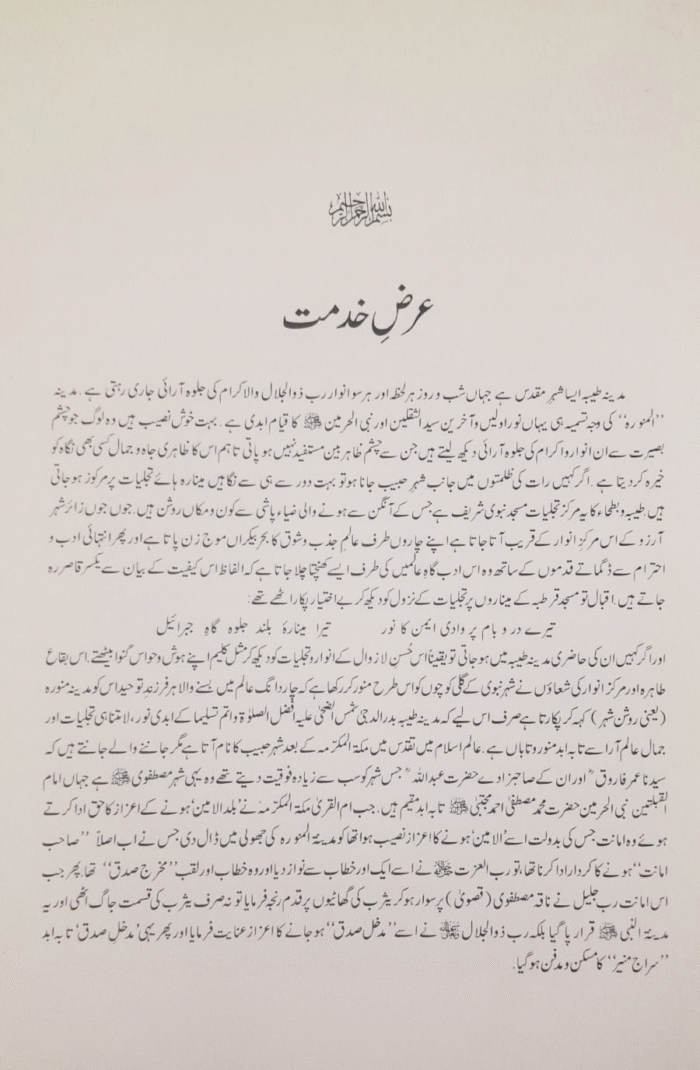 بسم الله الرحمن الرحیم
عرضِ خدمت
مدینہ طیبہ ایسا شہرِ مقدس ہے جہاں شب و روز ہر لحظہ اور ہر سو انوار رب ذوالجلال والاکرام کی جلوہ آرائی جاری رہتی ہے. مدینہ
”المنورہ“ کی وجہ تسمیہ ہی یہاں نور اولیں و آخریں سید الثقلین اور نبی الحرمین ﷺ کا قیام ابدی ہے. بہت خوش نصیب ہیں وہ لوگ جو چشم
بصیرت سے ان انوار و اکرام کی جلوہ آرائی دیکھ لیتے ہیں جن سے چشم ظاہر بین مستفید نہیں ہو پاتی تاہم اس کا ظاہری جاہ و جمال کسی بھی نگاہ کو
خیرہ کر دیتا ہے. اگر کہیں رات کی ظلمتوں میں جانب شہرِ حبیب جانا ہو تو بہت دور سے ہی سے نگاہیں مینارہ ہائے تجلیات پر مرکوز ہو جاتی
ہیں. طیبہ و بطحاء کا یہ مرکز تجلیات مسجد نبوی شریف ہے جس کے آنگن سے ہونے والی ضیاء پاشی سے کون و مکاں روشن ہیں. جوں جوں زائر شہر
آرزو کے اس مرکزِ انوار کے قریب آتا جاتا ہے اپنے چاروں طرف عالمِ جذب و شوق کا بحر بیکراں موج زن پاتا ہے اور پھر انتہائی ادب و
احترام سے ڈگمگاتے قدموں کے ساتھ وہ اس ادب گاہِ عالمیں کی طرف ایسے کھنچتا چلا جاتا ہے کہ الفاظ اس کیفیت کے بیان سے یکسر قاصر رہ
جاتے ہیں. اقبال تو مسجد قرطبہ کے میناروں پر تجلیات کے نزول کو دیکھ کر بے اختیار پکار اٹھے تھے:
تیرے در و بام پر وادی ایمن کا نور تیرا مینارۂ بلند جلوہ گاہِ جبرائیل
اور اگر کہیں ان کی حاضری مدینہ طیبہ میں ہو جاتی تو یقیناً اس حُسنِ لازوال کے انوار و تجلیات کو دیکھ کر مثل کلیم اپنے ہوش و حواس گنوا بیٹھتے. اس بقاع
طاہرہ اور مرکز انوار کی شعاؤں نے شہر نبوی کے گلی کوچوں کو اس طرح منور کر رکھا ہے کہ چار دانگ عالم میں بسنے والا ہر فرزندِ توحید اس کو مدینہ منورہ
(یعنی روشن شہر) کہہ کر پکارتا ہے صرف اس لیے کہ مدینہ طیبہ بدر الدجیٰ شمس الضحیٰ علیہ افضل الصلوٰۃ واتم تسلیما کے ابدی نور، لامتناہی تجلیات اور
جمال عالم آرا سے تابہ ابد منور و تاباں ہے. عالم اسلام میں تقدس میں مکۃ المکرّمہ کے بعد شہر حبیب کا نام آتا ہے مگر جاننے والے جانتے ہیں کہ
سیدنا عمر فاروقؓ اور ان کے صاحبزادے حضرت عبداللہؓ جس شہر کو سب سے زیادہ فوقیت دیتے تھے وہ یہی شہر مصطفوی ﷺ ہے جہاں امام
القبلتین نبی الحرمین حضرت محمد مصطفیٰ احمد مجتبیٰ ﷺ تابہ ابد مقیم ہیں. جب ام القریٰ مکۃ المکرّمہ نے ’بلد الامین‘ ہونے کے اعزاز کا حق ادا کرتے
ہوئے وہ امانت جس کی بدولت اسے ’الامین‘ ہونے کا اعزاز نصیب ہوا تھا کو مدینۃ المنورہ کی جھولی میں ڈال دی جس نے اب اصلاً ”صاحب
امانت“ ہونے کا کردار ادا کرنا تھا، تو رب العزت ﷻ نے اسے ایک اور خطاب سے نواز دیا اور وہ خطاب اور لقب ”مخرج صدق“ تھا. پھر جب
اس امانت رب جلیل نے ناقہ مصطفوی (قصویٰ) پر سوار ہو کر یثرب کی گھاٹیوں پر قدم رنجہ فرمایا تو نہ صرف یثرب کی قسمت جاگ اٹھی اور یہ
مدینۃ النبی ﷺ قرار پا گیا بلکہ رب ذوالجلال ﷻ نے اسے ”مدخل صدق“ ہو جانے کا اعزاز عنایت فرمایا اور پھر یہی ’مدخلِ صدق‘ تابہ ابد
”سراج منیر“ کا مسکن و مدفن ہو گیا.